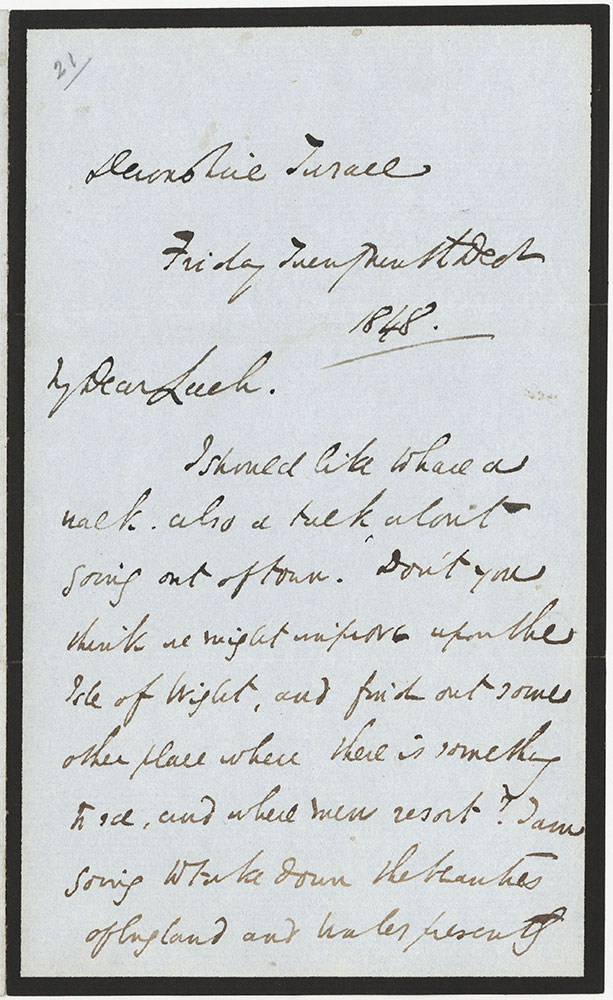 21/
Devonshire Terrace
Friday Twenty Ninth Decr
1848.
My Dear Leech.
I should like to have a
walk. also a talk, about
going out of town. Don't you
think we might improve upon the
Isle of Wight, and find out some
other place where there is something
to see, and where men resort? I am
going to take down the beauties
of England and Wales presently